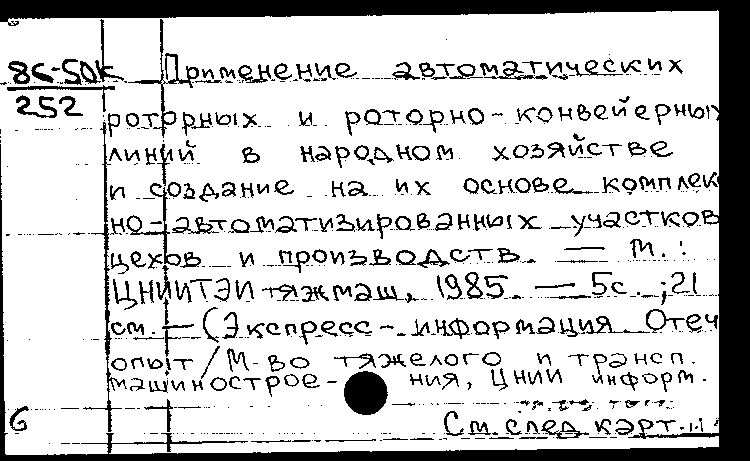 86-50К Применение автоматических
252
роторных и роторно-конвейерных
линий в народном хозяйстве
и создание на их основе комплекс
но-автоматизированных участков
цехов и производств. — М.:
ЦНИИТЭИтяжмаш, 1985. — 5с.; 21
см. — (Экспресс-информация. Отеч
опыт / М-во тяжелого и трансп.
машинострое- ния, ЦНИИ информ.
6 См. след карт.